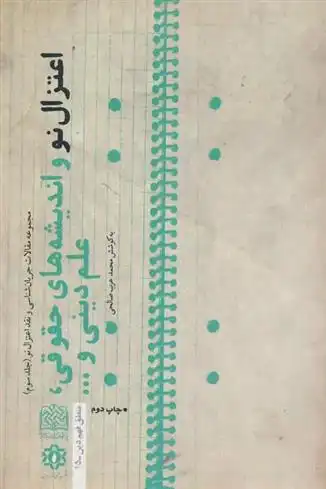 مجموعه مقالات جریان‌شناسی و نقد اعتزال نو (جلد سوم)
اعتزال نو و اندیشه‌های حقوقی،
علم دینی و ...
به کوشش محمد عرب صالحی
• چاپ دوم
منطق فهم دین - ۱۵